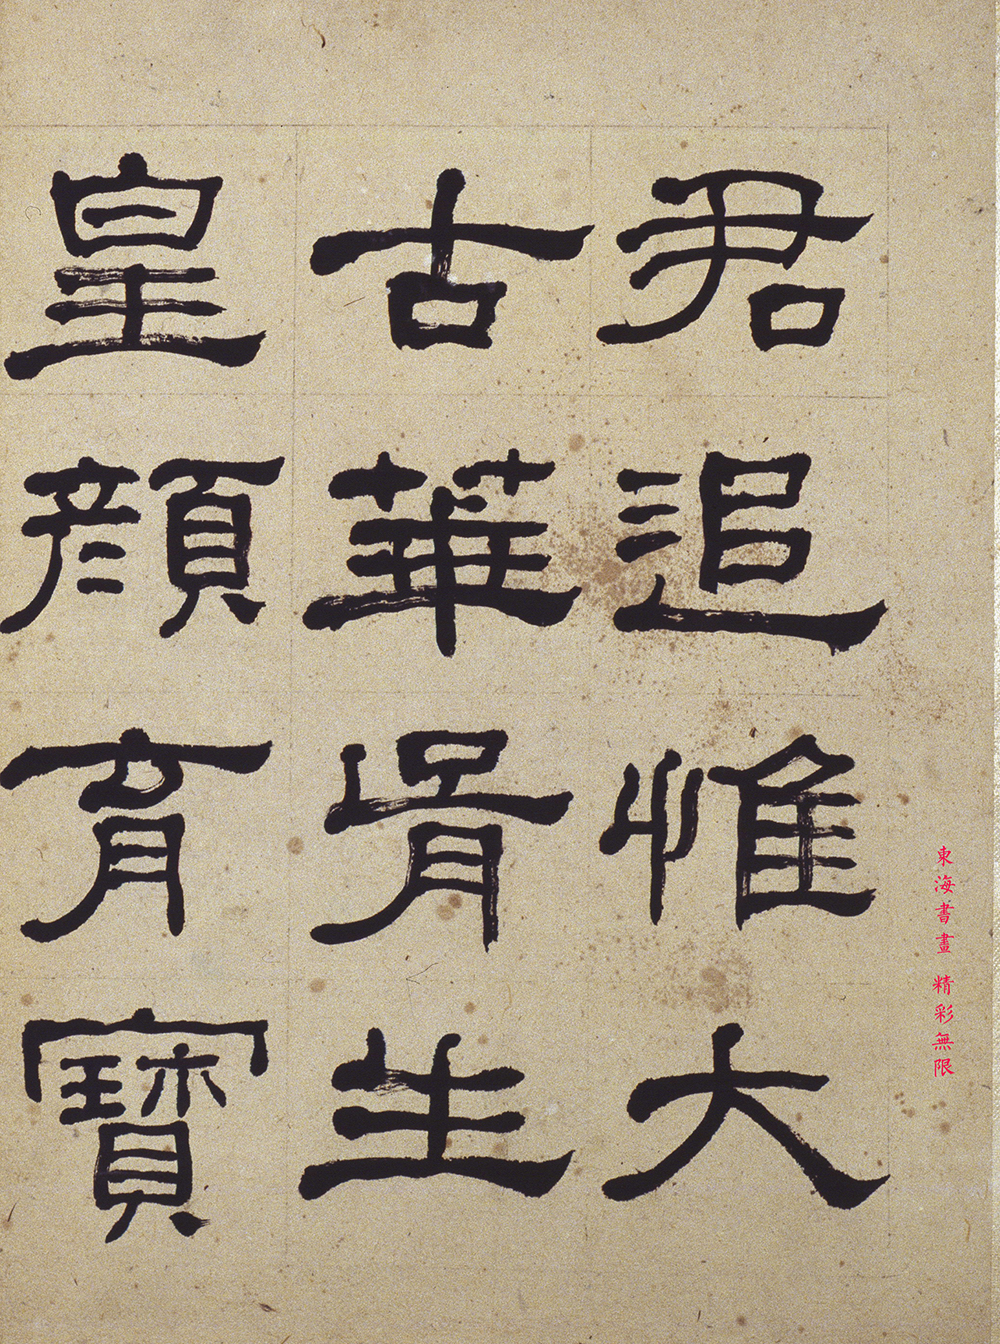 君追惟大
古華胥生
皇顏育寶
東海書畫 精彩無限